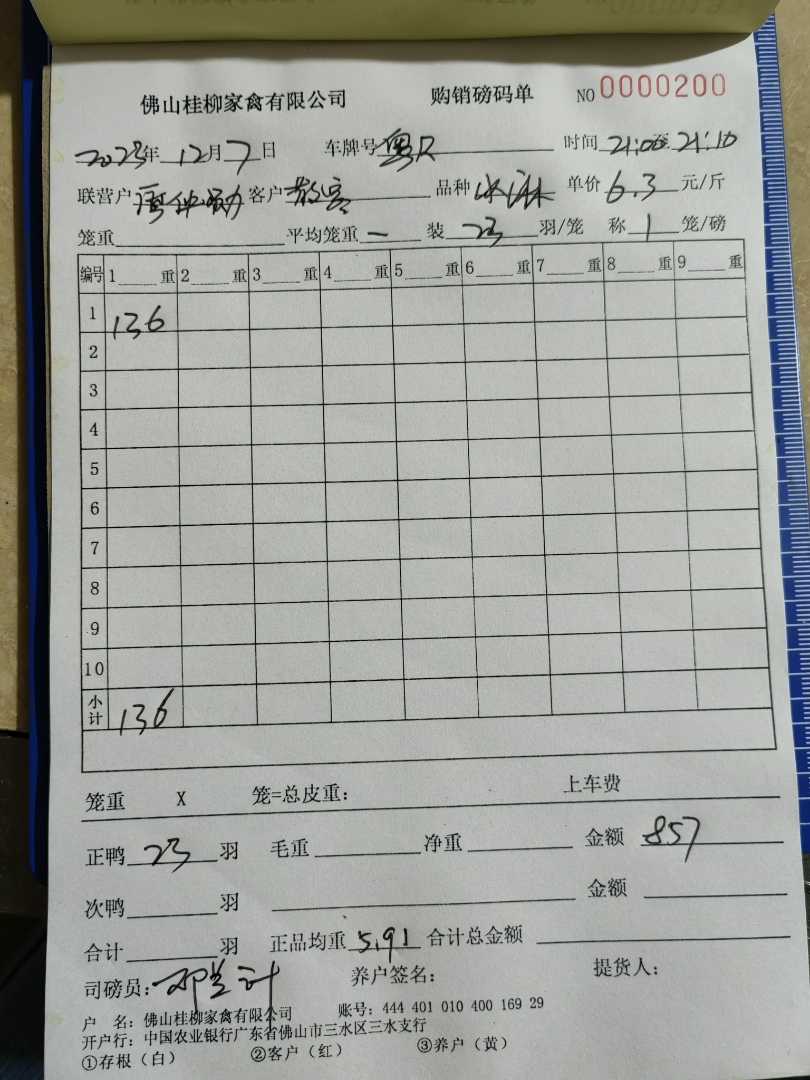 佛山桂柳家禽有限公司 购销磅码单 NO 0000200
2023年 12月 7日 车牌号 粤 时间 21:00至 21:10
联营户 客户 散客 品种 单价 6.3 元/斤
笼重 平均笼重 一 装 23 羽/笼 称 1 笼/磅
编号 1 重 2 重 3 重 4 重 5 重 6 重 7 重 8 重 9 重
1 136
2
3
4
5
6
7
8
9
10
小计 136
笼重 X 笼=总皮重: 上车费
正鸭 23 羽 毛重 净重 金额 857
次鸭 羽 金额
合计 羽 正品均重 5.91 合计总金额
司磅员: 养户签名: 提货人:
户 名: 佛山桂柳家禽有限公司 账号: 444 401 010 400 169 29
开户行: 中国农业银行广东省佛山市三水区三水支行
①存根(白) ②客户(红) ③养户(黄)